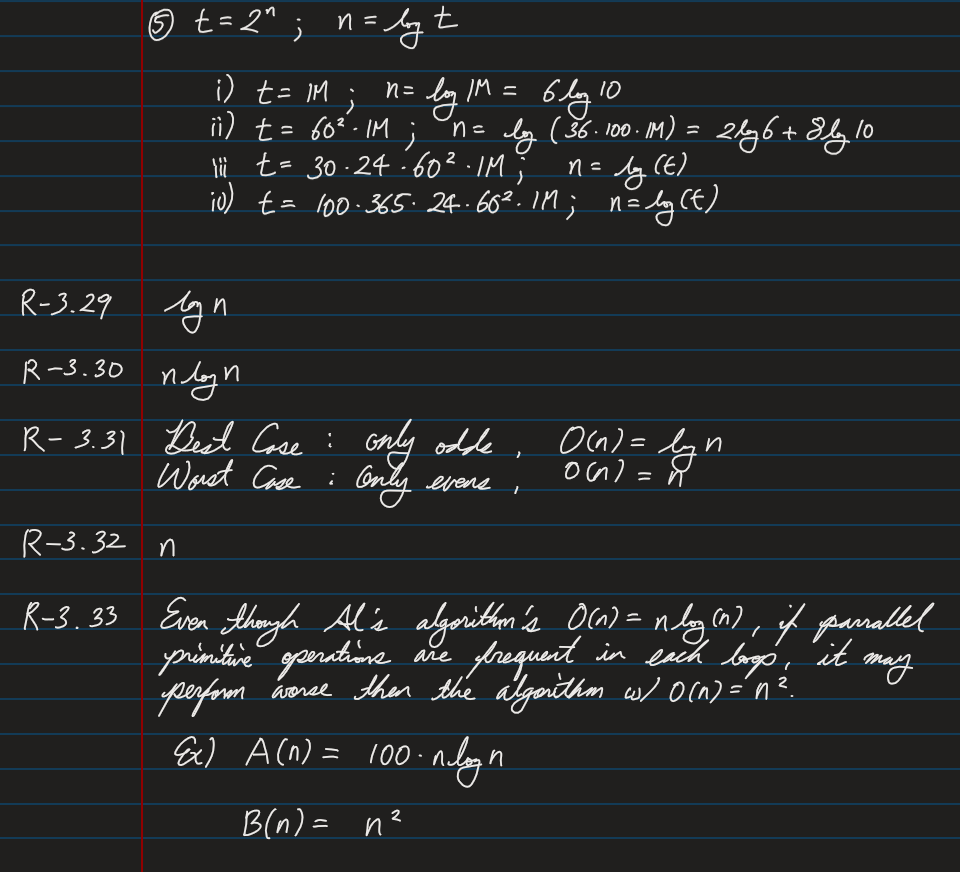 ⑤ t = 2ⁿ ; n = log t
i) t = 1M ; n = log 1M = 6 log 10
ii) t = 60² · 1M ; n = log (36 · 100 · 1M) = 2 log 6 + 8 log 10
iii t = 30 · 24 · 60² · 1M ; n = log (t)
iv) t = 100 · 365 · 24 · 60² · 1M ; n = log (t)
R-3.29 log n
R-3.30 n log n
R-3.31 Best Case : only odds , O(n) = log n
Worst Case : Only evens , O(n) = n
R-3.32 n
R-3.33 Even though Al's algorithm's O(n) = n log (n) , if parrallel
primitive operations are frequent in each loop, it may
perform worse then the algorithm w/ O(n) = n².
Ex) A(n) = 100 · n log n
B(n) = n²